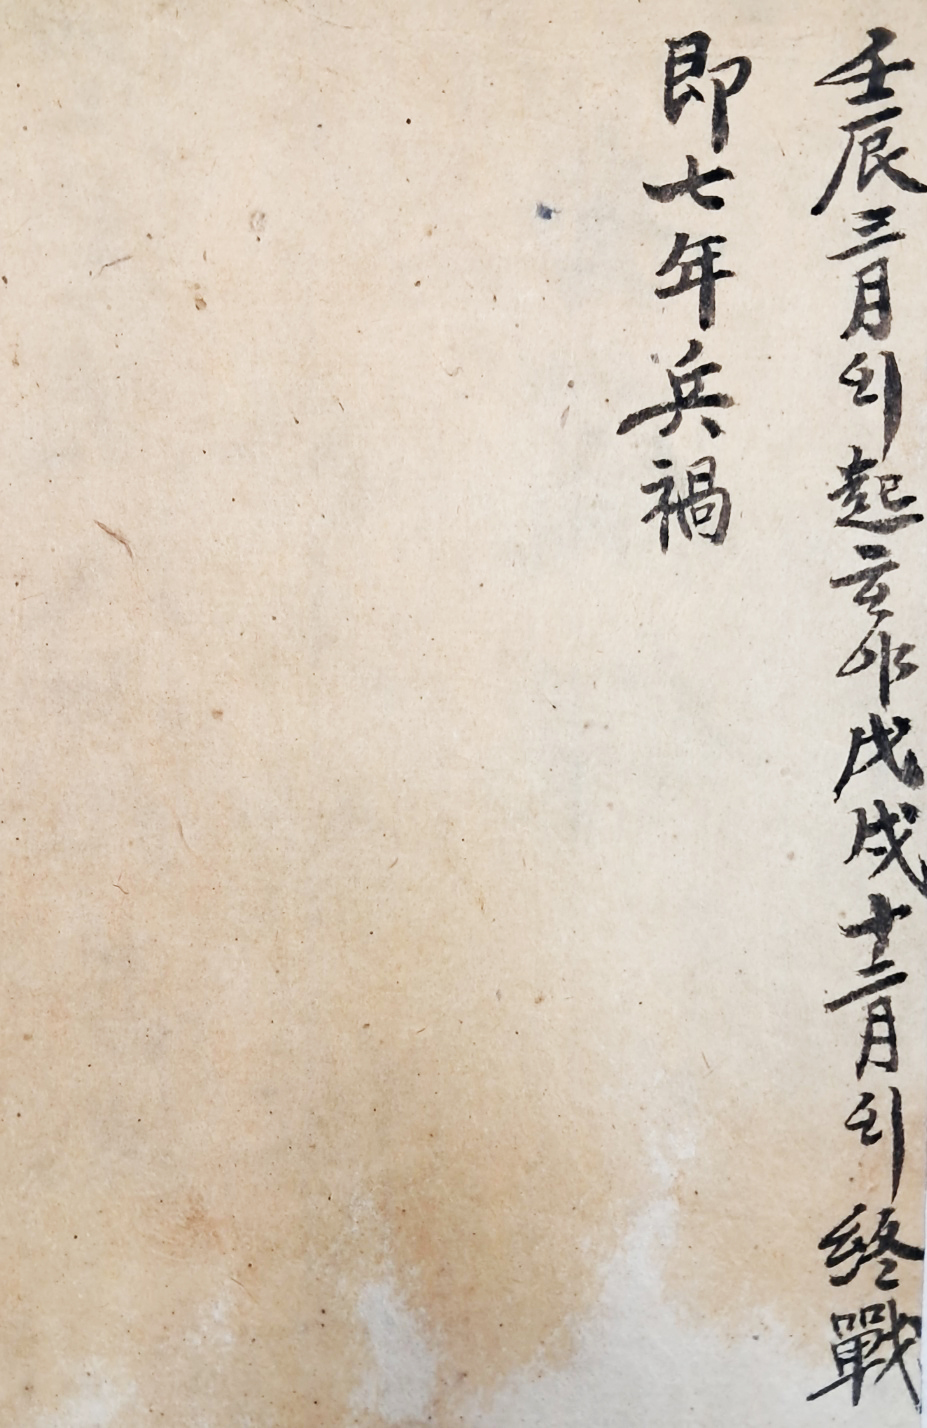 壬辰三月의起호야戊戌十二月의終戰
即七年兵禍